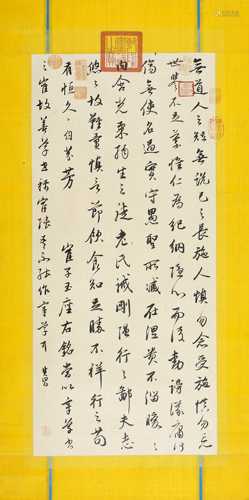 無道人之短無說己之長施人慎勿念受施慎勿忘
世譽不足慕惟仁為紀綱隱心而後動謗議庸何
傷無使名過實守愚聖所臧在涅貴不淄曖〻
內含光柔弱生之徒老氏誡剛彊行〻鄙夫志
悠〻故難量慎言節飲食知足勝不祥行之苟
有恒久〻自芬芳 崔子玉座右銘嘗以章草書
之崔故善學書稱崔張 不 作章草耳 其昌